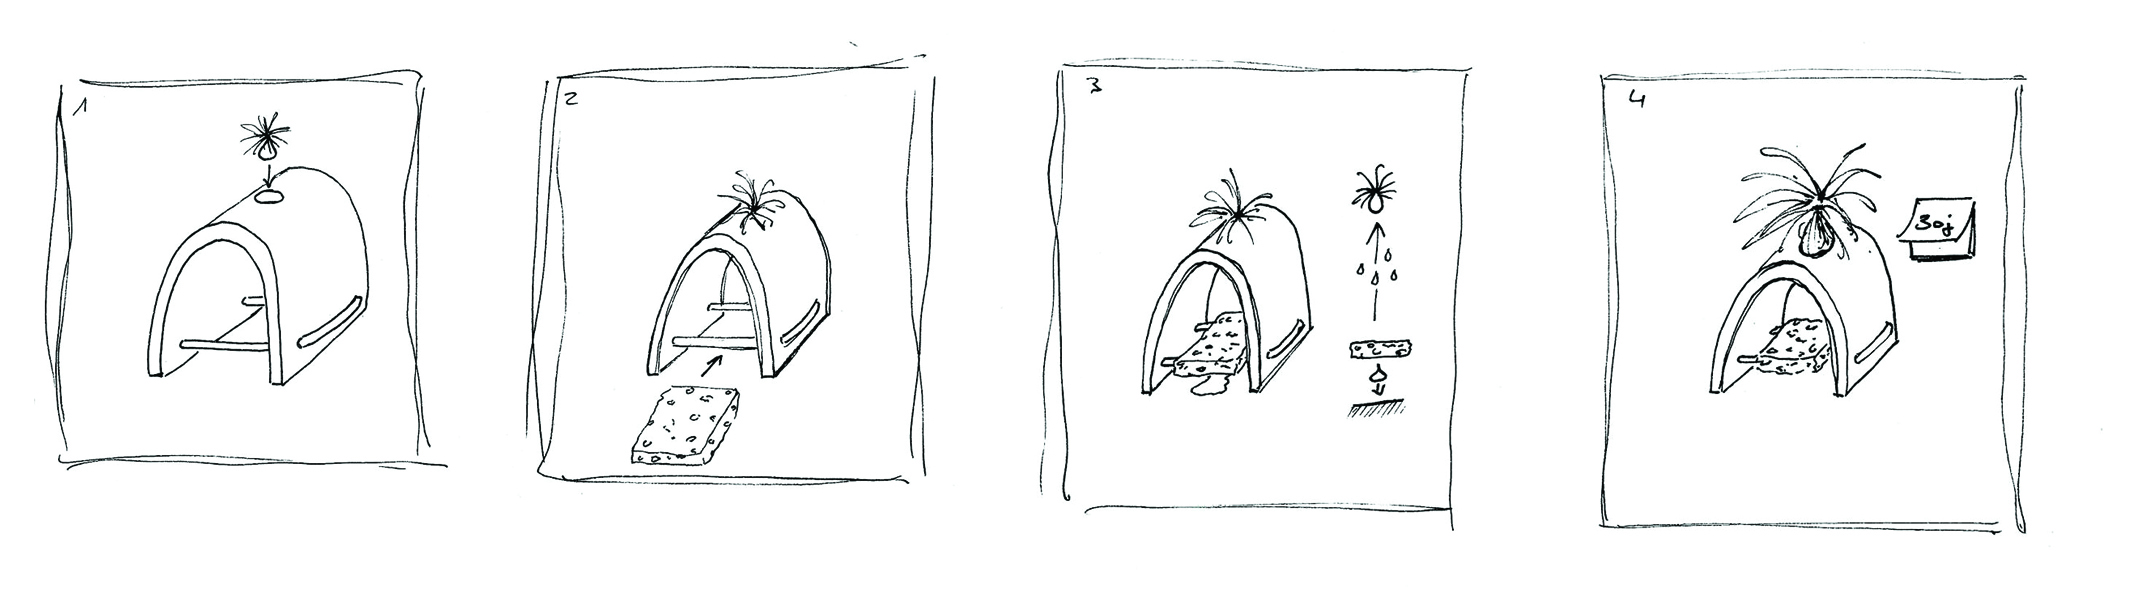 1
2
3
4
30j